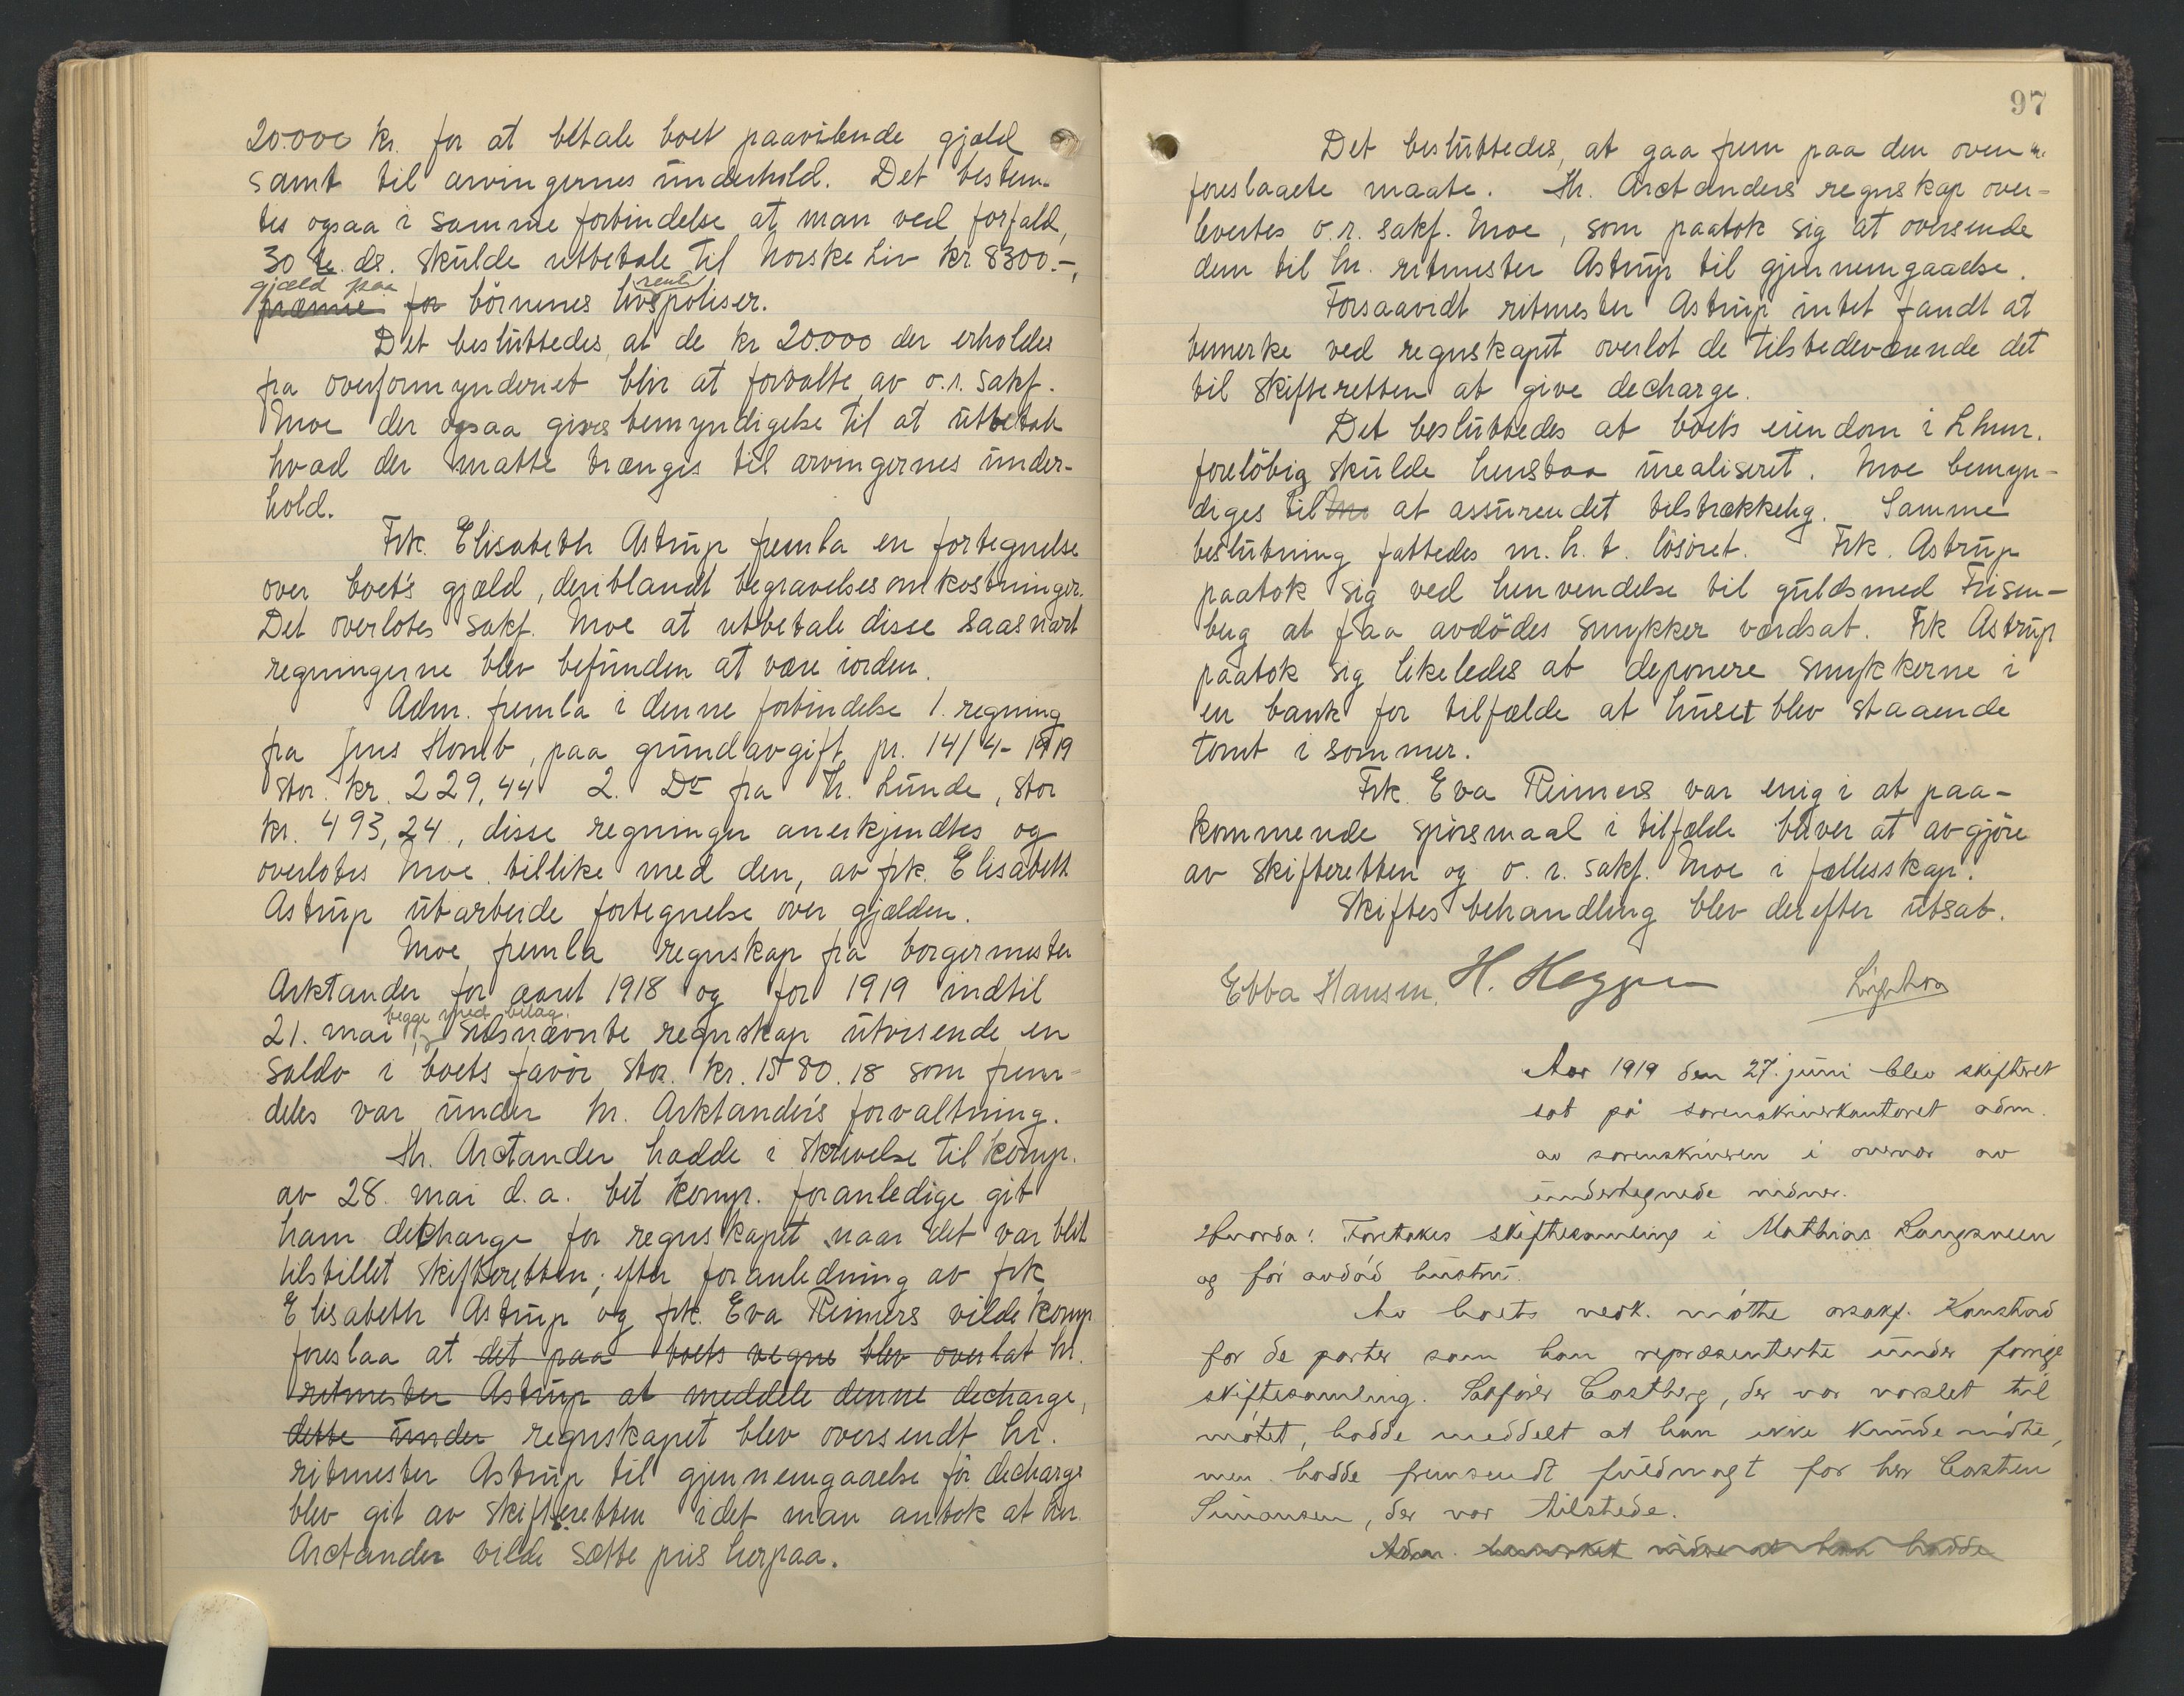 20.000 kr. for at betale boet paavilende gjæld
samt til arvingernes underhold. Det bestem-
tes ogsaa i samme forbindelse at man ved forfald,
30 te. ds. skulde utbetale til Norske Liv kr 8300.-,
gjæld paa rente
præmie for börnenes livspoliser.
Det besluttedes at de kr 20.000 der erholdes
fra overformynderiet blir at forvalte av o.r. sakf.
Moe der ogsaa gives bemyndigelse til at utbetale
hvad der maatte trænges til arvingernes under-
hold.
Frk. Elisabeth Astrup fremla en fortegnelse
over boet's gjæld, deriblandt begravelsesomkostninger.
Det overlotes sakf. Moe at utbetale disse saasnart
regningerne blev befunden at være iorden.
Adm. fremla i denne forbindelse 1. regning
fra Jens Homb, paa grundavgift pr. 14/4-1919
stor. kr. 229,44 2. Do fra Th. Lunde, stor
kr. 493,24, disse regninger anerkjendtes og
overlotes Moe tillike med den, av frk. Elisabeth
Astrup utarbeide fortegnelse over gjælden.
Moe fremla regnskap fra borgermester
Arktander for aaret 1918 og for 1919 indtil
begge med bilag.
21. mai, sidsnævnte regnskap utvisende en
saldo i boets favör stor. kr. 1580.18 som frem-
deles var under hr. Arktander's forvaltning.
Hr. Arctander hadde i skrivelse til komp.
av 28. mai d.a. bet komp. foranledige git
ham decharge for regnskapet naar det var blit
tilstillet skifteretten; efter foranledning av frk.
Elisabeth Astrup og frk. Eva Reimers vilde komp
foreslaa at det paa boets vegne blev overlat hr.
ritmester Astrup at meddele denne decharge,
dette under regnskapet blev oversendt hr.
ritmester Astrup til gjennemgaaelse för decharge
blev git av skifteretten idet man antok at hr.
Arctander vilde sætte pris herpaa.
97
Det besluttedes, at gaa frem paa den oven
foreslaaete maate. Hr. Arctanders regnskap over-
levertes o.r. sakf. Moe, som paatok sig at oversende
dem til hr. ritmester Astrup til gjennemgaaelse.
Forsaavidt ritmester Astrup intet fandt at
bemerke ved regnskapet overlot de tilstedeværende det
til skifteretten at give decharge.
Det besluttedes at boets eiendom i Lhmr.
forelöbig skulde henstaa urealiseret. Moe bemyn-
diges til at assurendet tilstrækkelig. Samme
beslutning fattedes m.h.t. lösöret. Frk. Astrup
paatok sig ved henvendelse til guldsmed Frisen-
berg at faa avdödes smykker værdsat. Frk Astrup
paatok sig likeledes at deponere smykkerne i
en bank for tilfælde at huset blev staaende
tomt i sommer.
Frk. Eva Reimers var enig i at paa-
kommende spörsmaal i tilfælde bliver at avgjöre
av skifteretten og o.r. sakf. Moe i fællesskap.
Skiftes behandling blev derefter utsat.
Ebba Hansen. H. Heggen
Aar 1919 den 27. juni blev skifteret
sat på sorenskriverkontoret adm.
av sorenskriveren i overvær av
undertegnede vidner.
Hvorda: Foretokes skiftesamling i Mathias Langsveen
og før avdød hustru.
Av boets vedk. møtte orsakf. Konstad
for de parter som han repræsenterte under forrige
skiftesamling. Sakfører Castberg, der var varslet til
møtet, hadde meddelt at han ikke kunde møte,
men hadde fremsendt fuldmagt for hr Carsten
Simonsen, der var tilstede.
Adm. bemerket videre at han hadde